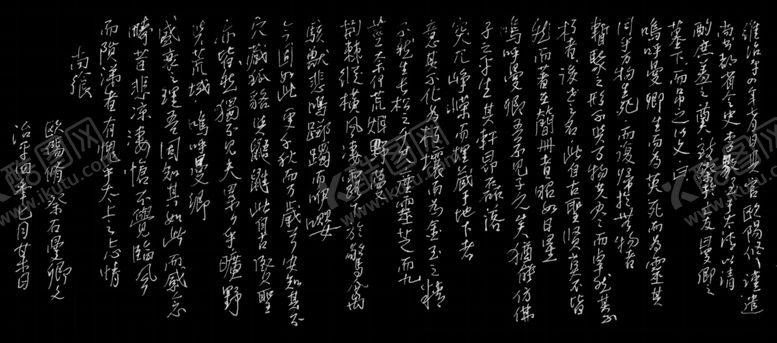 維治平四年七月日具官歐陽修謹遣
尚書都省令史李敭至於太清以清
酌庶羞之奠致祭於亡友曼卿之
墓下而弔之以文曰
嗚呼曼卿生而為英死而為靈其
同乎萬物生死而復歸於無物者
暫聚之形不與萬物共盡而卓然其不
朽者後世之名此自古聖賢莫不皆
然而著在簡冊者昭如日星
嗚呼曼卿吾不見子久矣猶能仿佛
子之平生其軒昂磊落
突兀崢嶸而埋藏于地下者
意其不化為朽壤而為金玉之精
不然生長松之千尺產靈芝而九
莖奈何荒煙野蔓
荊棘縱橫風淒露下 驚禽
駭獸悲鳴躑躅而咿嚶
今固如此更千秋而萬歲兮安知其不
穴藏狐貉與鼯鼪此自古聖賢
亦皆然兮獨不見夫累累乎曠野
與荒城嗚呼曼卿
盛衰之理吾固知其如此而感念
疇昔悲涼悽愴不覺臨風
而隕涕者有愧乎太上之忘情
尚饗
歐陽修祭石曼卿文
治平四年七月某日